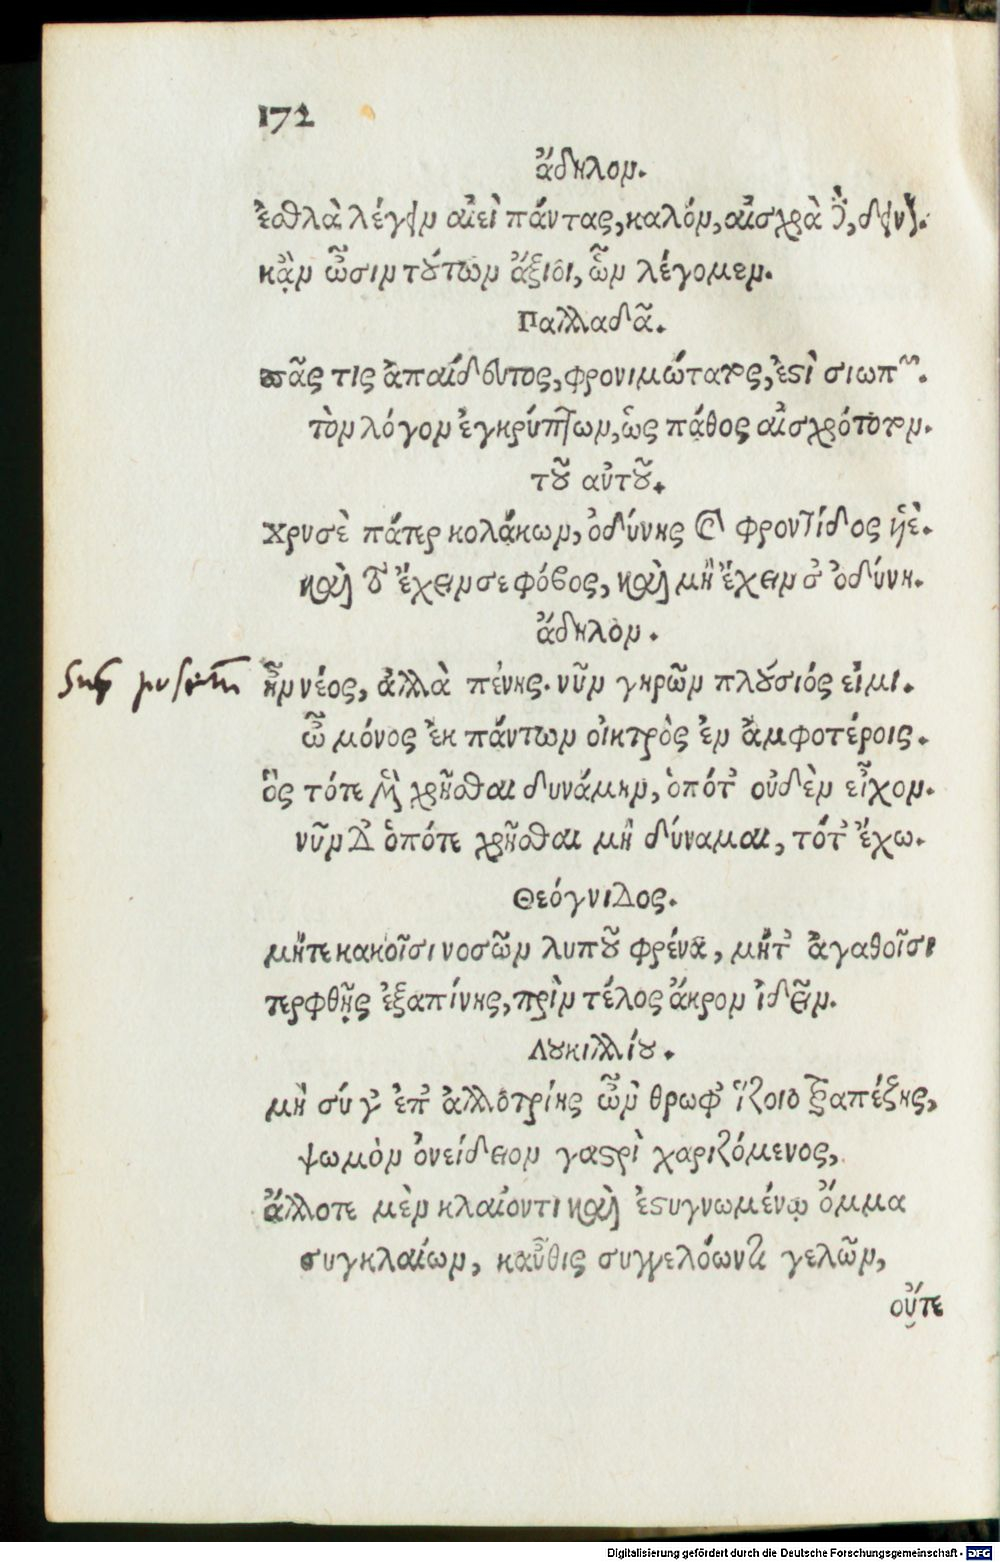 172
ἄδηλον.
ἐσθλὰ λέγειν αἰεὶ πάντας, καλόν, αἰσχρὰ δὲ, δεινά.
κᾂν ὦσιν τούτων ἄξιοι, ὧν λέγομεν.
Παλλαδᾶ.
πᾶς τις ἀπαίδευτος, φρονιμώτατος, ἐστὶ σιωπῶν.
τὸν λόγον ἐγκρύπτων, ὡς πάθος αἰσχρότατον.
τοῦ αὐτοῦ.
Χρυσὲ πάτερ κολάκων, ὀδύνης καὶ φροντίδος ὑιὲ.
καὶ τὸ ἔχειν σε φόβος, καὶ μὴ ἔχειν σ' ὀδύνη.
ἄδηλον.
ἦν νέος, ἀλλὰ πένης. νῦν γηρῶν πλούσιός εἰμι.
ὦ μόνος ἐκ πάντων οἰκτρὸς ἐν ἀμφοτέροις.
ὃς τότε μὲν χρῆσθαι δυνάμην, ὁπότ' οὐδὲν εἶχον.
νῦν δ' ὁπότε χρῆσθαι μὴ δύναμαι, τότ' ἔχω.
Θεόγνιδος.
μήτε κακοῖσι νοσῶν λυποῦ φρένα, μήτ' ἀγαθοῖσι
τερφθῇς ἐξαπίνης, πρὶν τέλος ἄκρον ἰδεῖν.
Λουκιλλίου.
μὴ σύ γ' ἐπ' ἀλλοτρίης ὦν' θρωφ' ἵζοιο τραπέζης,
ψωμὸν ὀνείδειον γαστρὶ χαριζόμενος,
ἄλλοτε μὲν κλαίοντι καὶ ἐστυγνωμένῳ ὄμμα
συγκλαίων, καὖθις συγγελόωντα γελῶν,
οὔτε
Digitalisierung gefördert durch die Deutsche Forschungsgemeinschaft - DFG